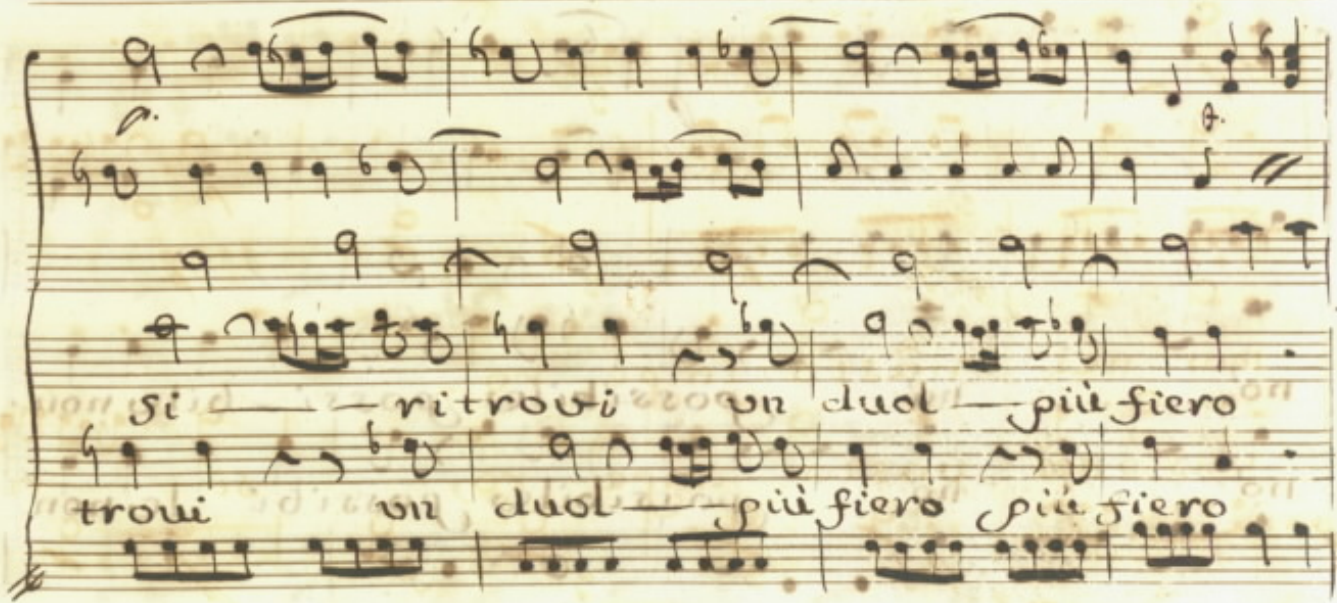 p.
f.
si — — ritrovi un duol — più fiero
trovi un duol — — più fiero più fiero